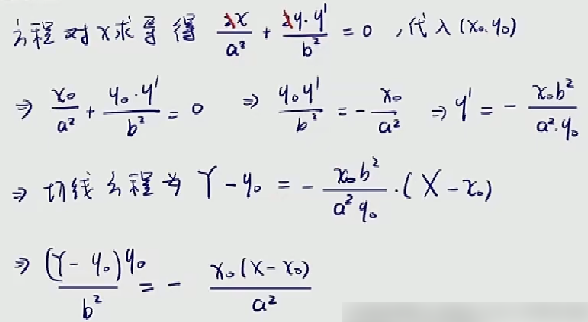 方程对x求导得 2x/a² + 2y·y'/b² = 0 ,代入(x₀,y₀)
⇒ x₀/a² + y₀·y'/b² = 0 ⇒ y₀y'/b² = - x₀/a² ⇒ y' = - x₀b²/a²·y₀
⇒ 切线方程为 Y-y₀ = - x₀b²/a²y₀ ·(X-x₀)
⇒ (Y-y₀)y₀/b² = - x₀(X-x₀)/a²